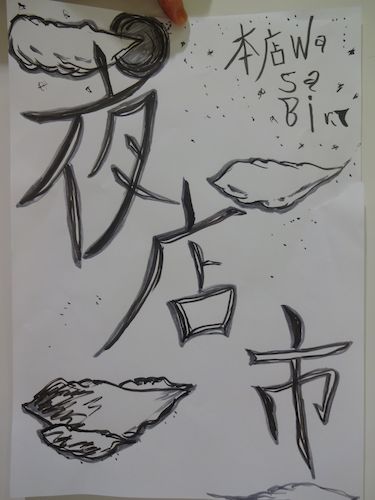 本店Wa
sa
Bin
夜
店
市